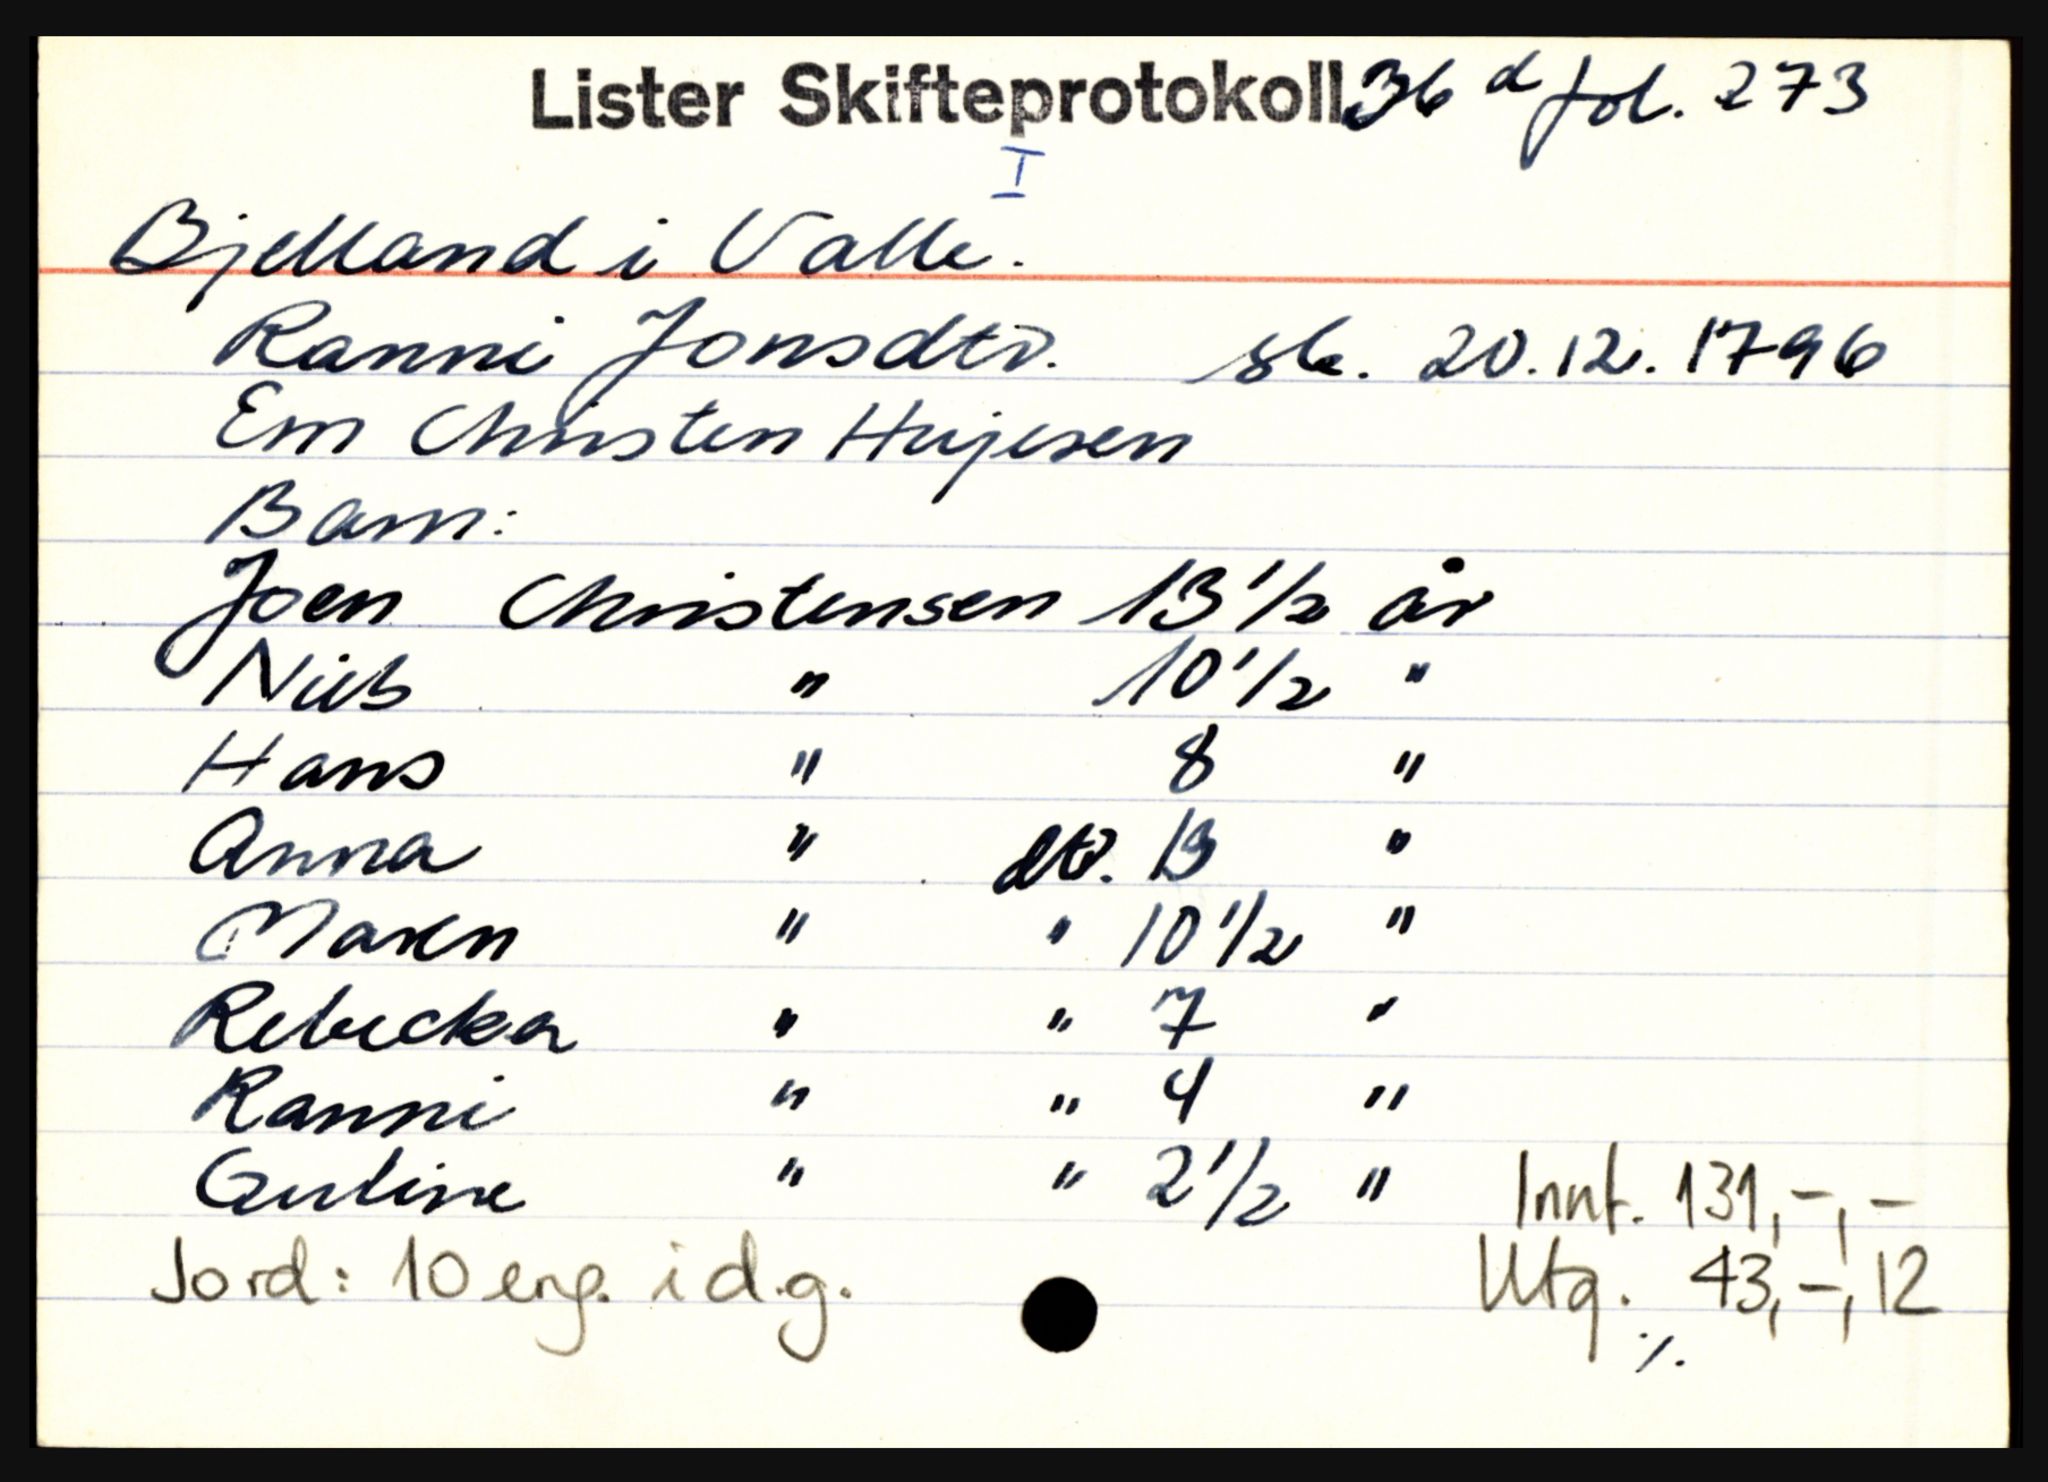 Lister Skifteprotokoll 36 d fol. 273
I
Bjelland i Valle.
Ranni Jonsdtr. sk. 20.12.1796
Em Christen
Barn:
Joen Christensen 13 1/2 år
Niels " 10 1/2 "
Hans " 8 "
Anna " dtr. 13 "
Maren " " 10 1/2 "
Rebecka " " 7 "
Ranni " " 4 "
Guline " " 2 1/2 "
Innt. 131,-,-
Jord: 10 eng. i d.g.
Utg. 43,-,12
./.